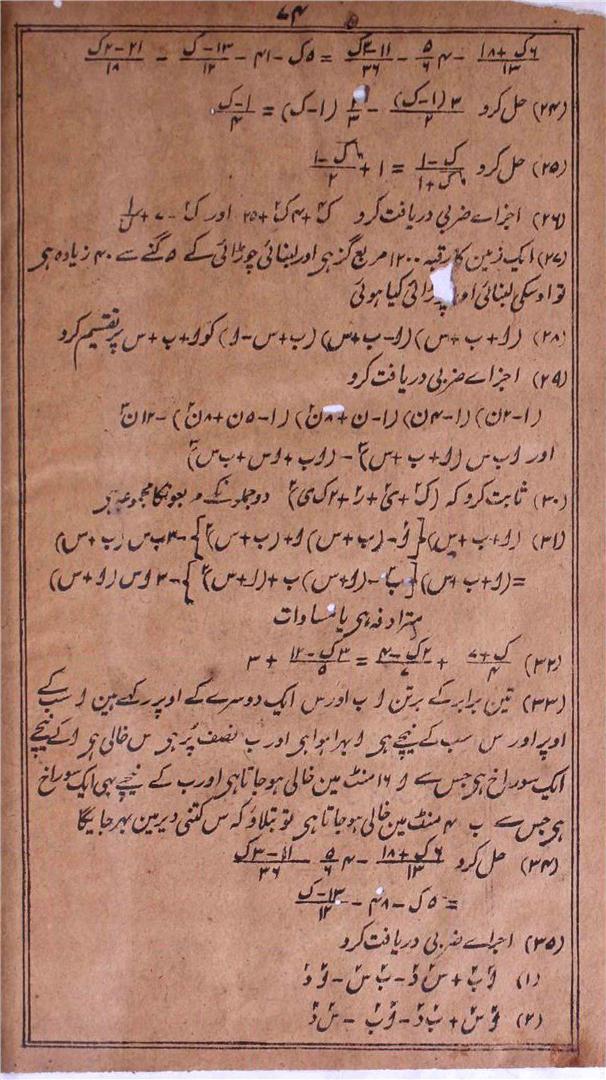 ۷۴
(۶ک+۱۸)/۱۳ - ۴ ۵/۶ - (۱۱-۳ک)/۳۶ = ۵ک - ۴۱ - (۱۳-ک)/۱۲ - (۲۱-۲ک)/۱۸
(۲۴) حل کرو ۳(۱-ک)/۲ - /۳ (۱-ک) = (۱-ک)/۴
(۲۵) حل کرو (ک-۱)/(√ک+۱) = ۱ + (√ک-۱)/۲
(۲۶) اجزاے ضربی دریافت کرو ک۴+۶ک۲+۲۵ اور
(۲۷) ایک زمین کا رقبہ ۱۲۰۰ مربع گز ہی اور لنبائی چوڑائی کے ۵ گنے سے ۴۰ زیادہ ہی
تو اوسکی لنبائی اور چوڑائی کیا ہوئی
(۲۸) (ا+ب+س)(ا-ب+س)(ب+س-ا) کو ا+ب+س پر تقسیم کرو
(۲۹) اجزاے ضربی دریافت کرو
(۱-۲ن)(۱-۴ن)(۱-ن+۸ن۲)(۱-۵ن+۸ن۲)-۱۲ن۲
اور اب س (ا+ب+س)۳ - (اب+اس+ب س)۳
(۳۰) ثابت کرو کہ (ک۲+ی۲+ر۲+۲ک ی) دو جملونکے مربعونکا مجموعہ ہی
(۳۱) (ا+ب+س){ا۲-(ب+س)ا+(ب+س)۲}-۳ب س(ب+س)
=(ا+ب+س){ب۲-(ا+س)ب+(ا+س)۲}-۳اس(ا+س)
مترادفہ ہی یا مساوات
(۳۲) (ک+۷)/۴ + (۲ک-۴)/۷ = (۳ک-۱۲)/۵ + ۳
(۳۳) تین برابر کے برتن ا ب اور س ایک دوسرے کے اوپر رکھے ہین ا سب کے
اوپر اور س سب کے نیچے ہی ا بہرا ہوا ہی اور ب نصف پُر ہی س خالی ہی ا کے نیچے
ایک سوراخ ہی جس سے ا ۱۶ منٹ مین خالی ہو جاتا ہی اور ب کے نیچے بہی ایک سوراخ
ہی جس سے ب ۴ منٹ مین خالی ہو جاتا ہی تو بتلاؤ کہ س کتنی دیر مین بہر جایگا
(۳۴) حل کرو (۶ک+۱۸)/۱۳ - ۴ ۵/۶ - (۱۱-۳ک)/۳۶
= ۵ک - ۴۸ - (۱۳-ک)/۱۲
(۳۵) اجزاے ضربی دریافت کرو
(۱) ا۲ب۲+س۲د۲-ب۲س۲-ا۲د۲
(۲) ا۲س۲+ب۲د۲-ا۲ب۲-س۲د۲